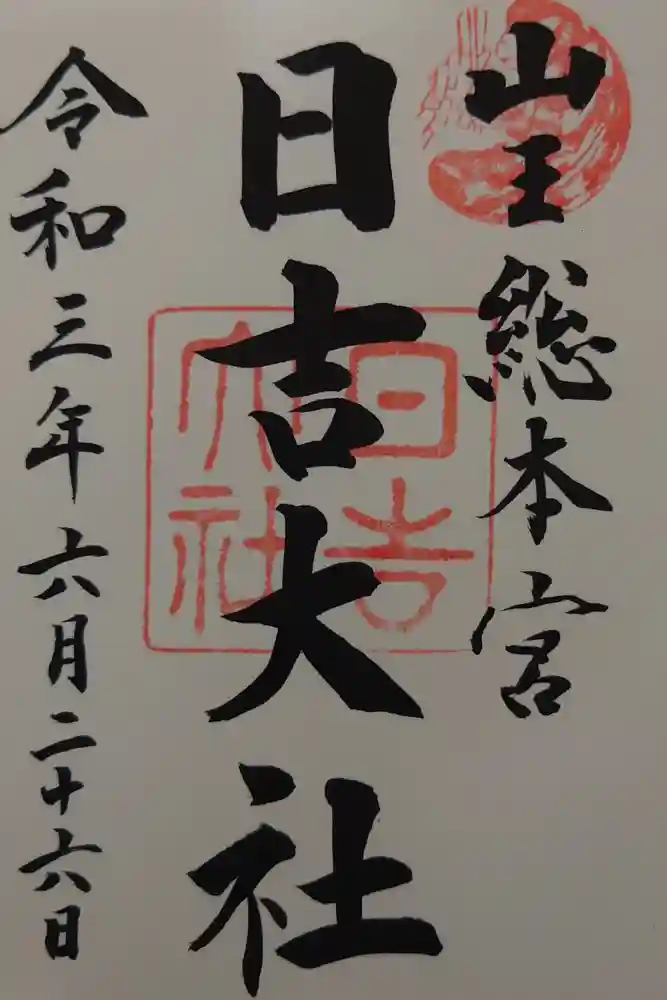 山王総本宮
日吉大社
日吉大社
令和三年六月二十六日